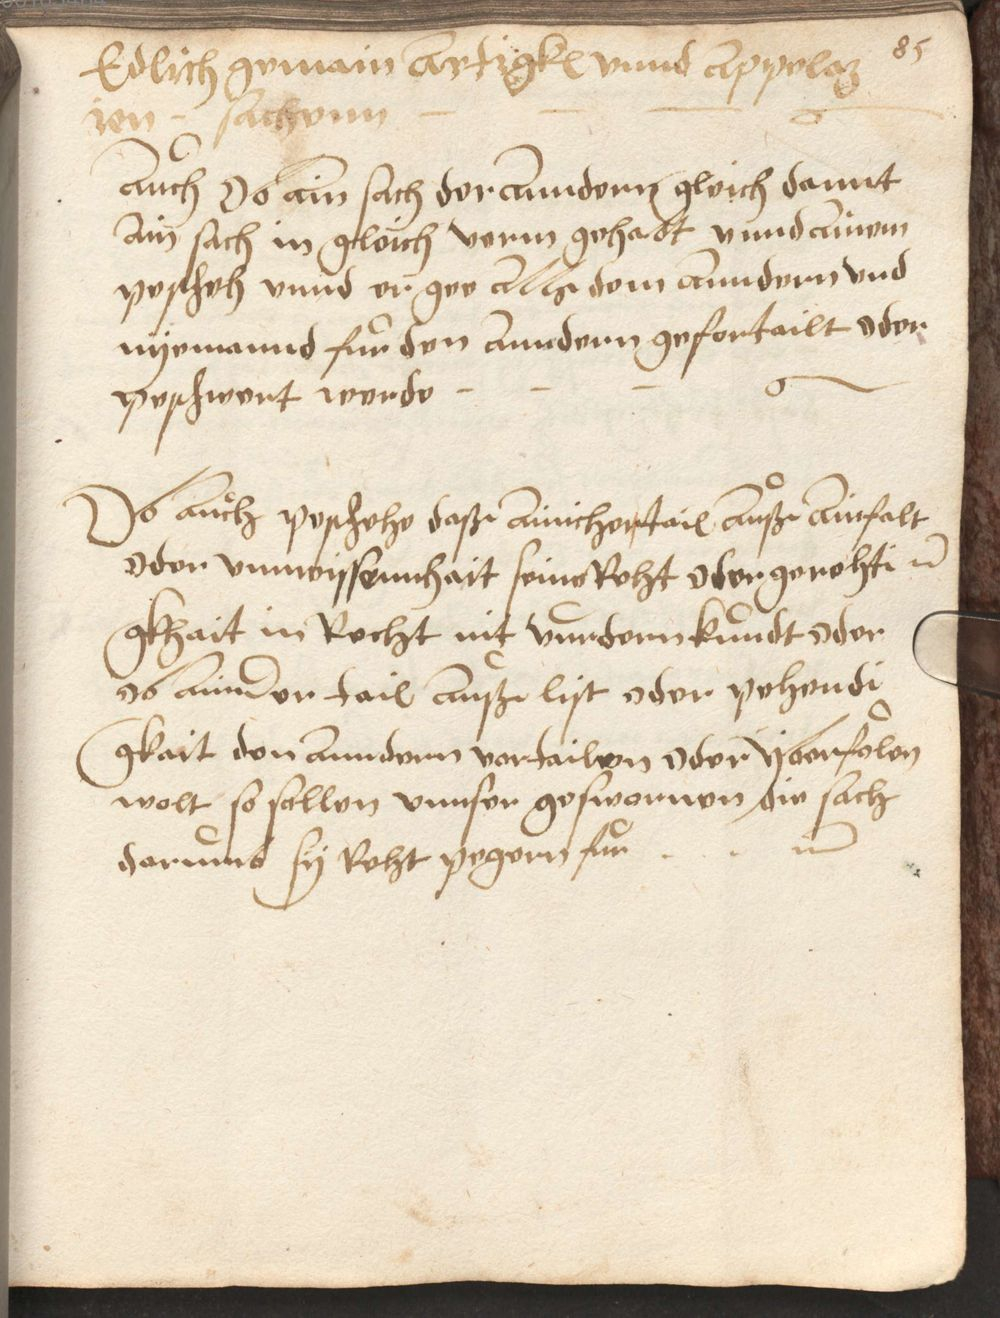 85
Edlich gemain Artigkl vnnd Appelaz
ien - sachenn - - -
Auch Ob ain sach der Anndern gleich damit
Ain sach in gleich verm gehabt vnnd ainem
peschech vnnd er gee Alls dem Anndern vnd
nyemannd für den Anndern gefortailt oder
peschwert werde - - -
Ob auch peschehe dass ainicher tail auß Ainfalt
oder vnnwissennhait seine Recht oder gerechti
gkhait in Recht nit vürdern kundt oder
ob ainer tail auß list oder pehendi
gkait den Anndern vortailen oder yberfolen
wolt so sollen vnnser geswornen die sach
darumb sy Recht pegern für . . .